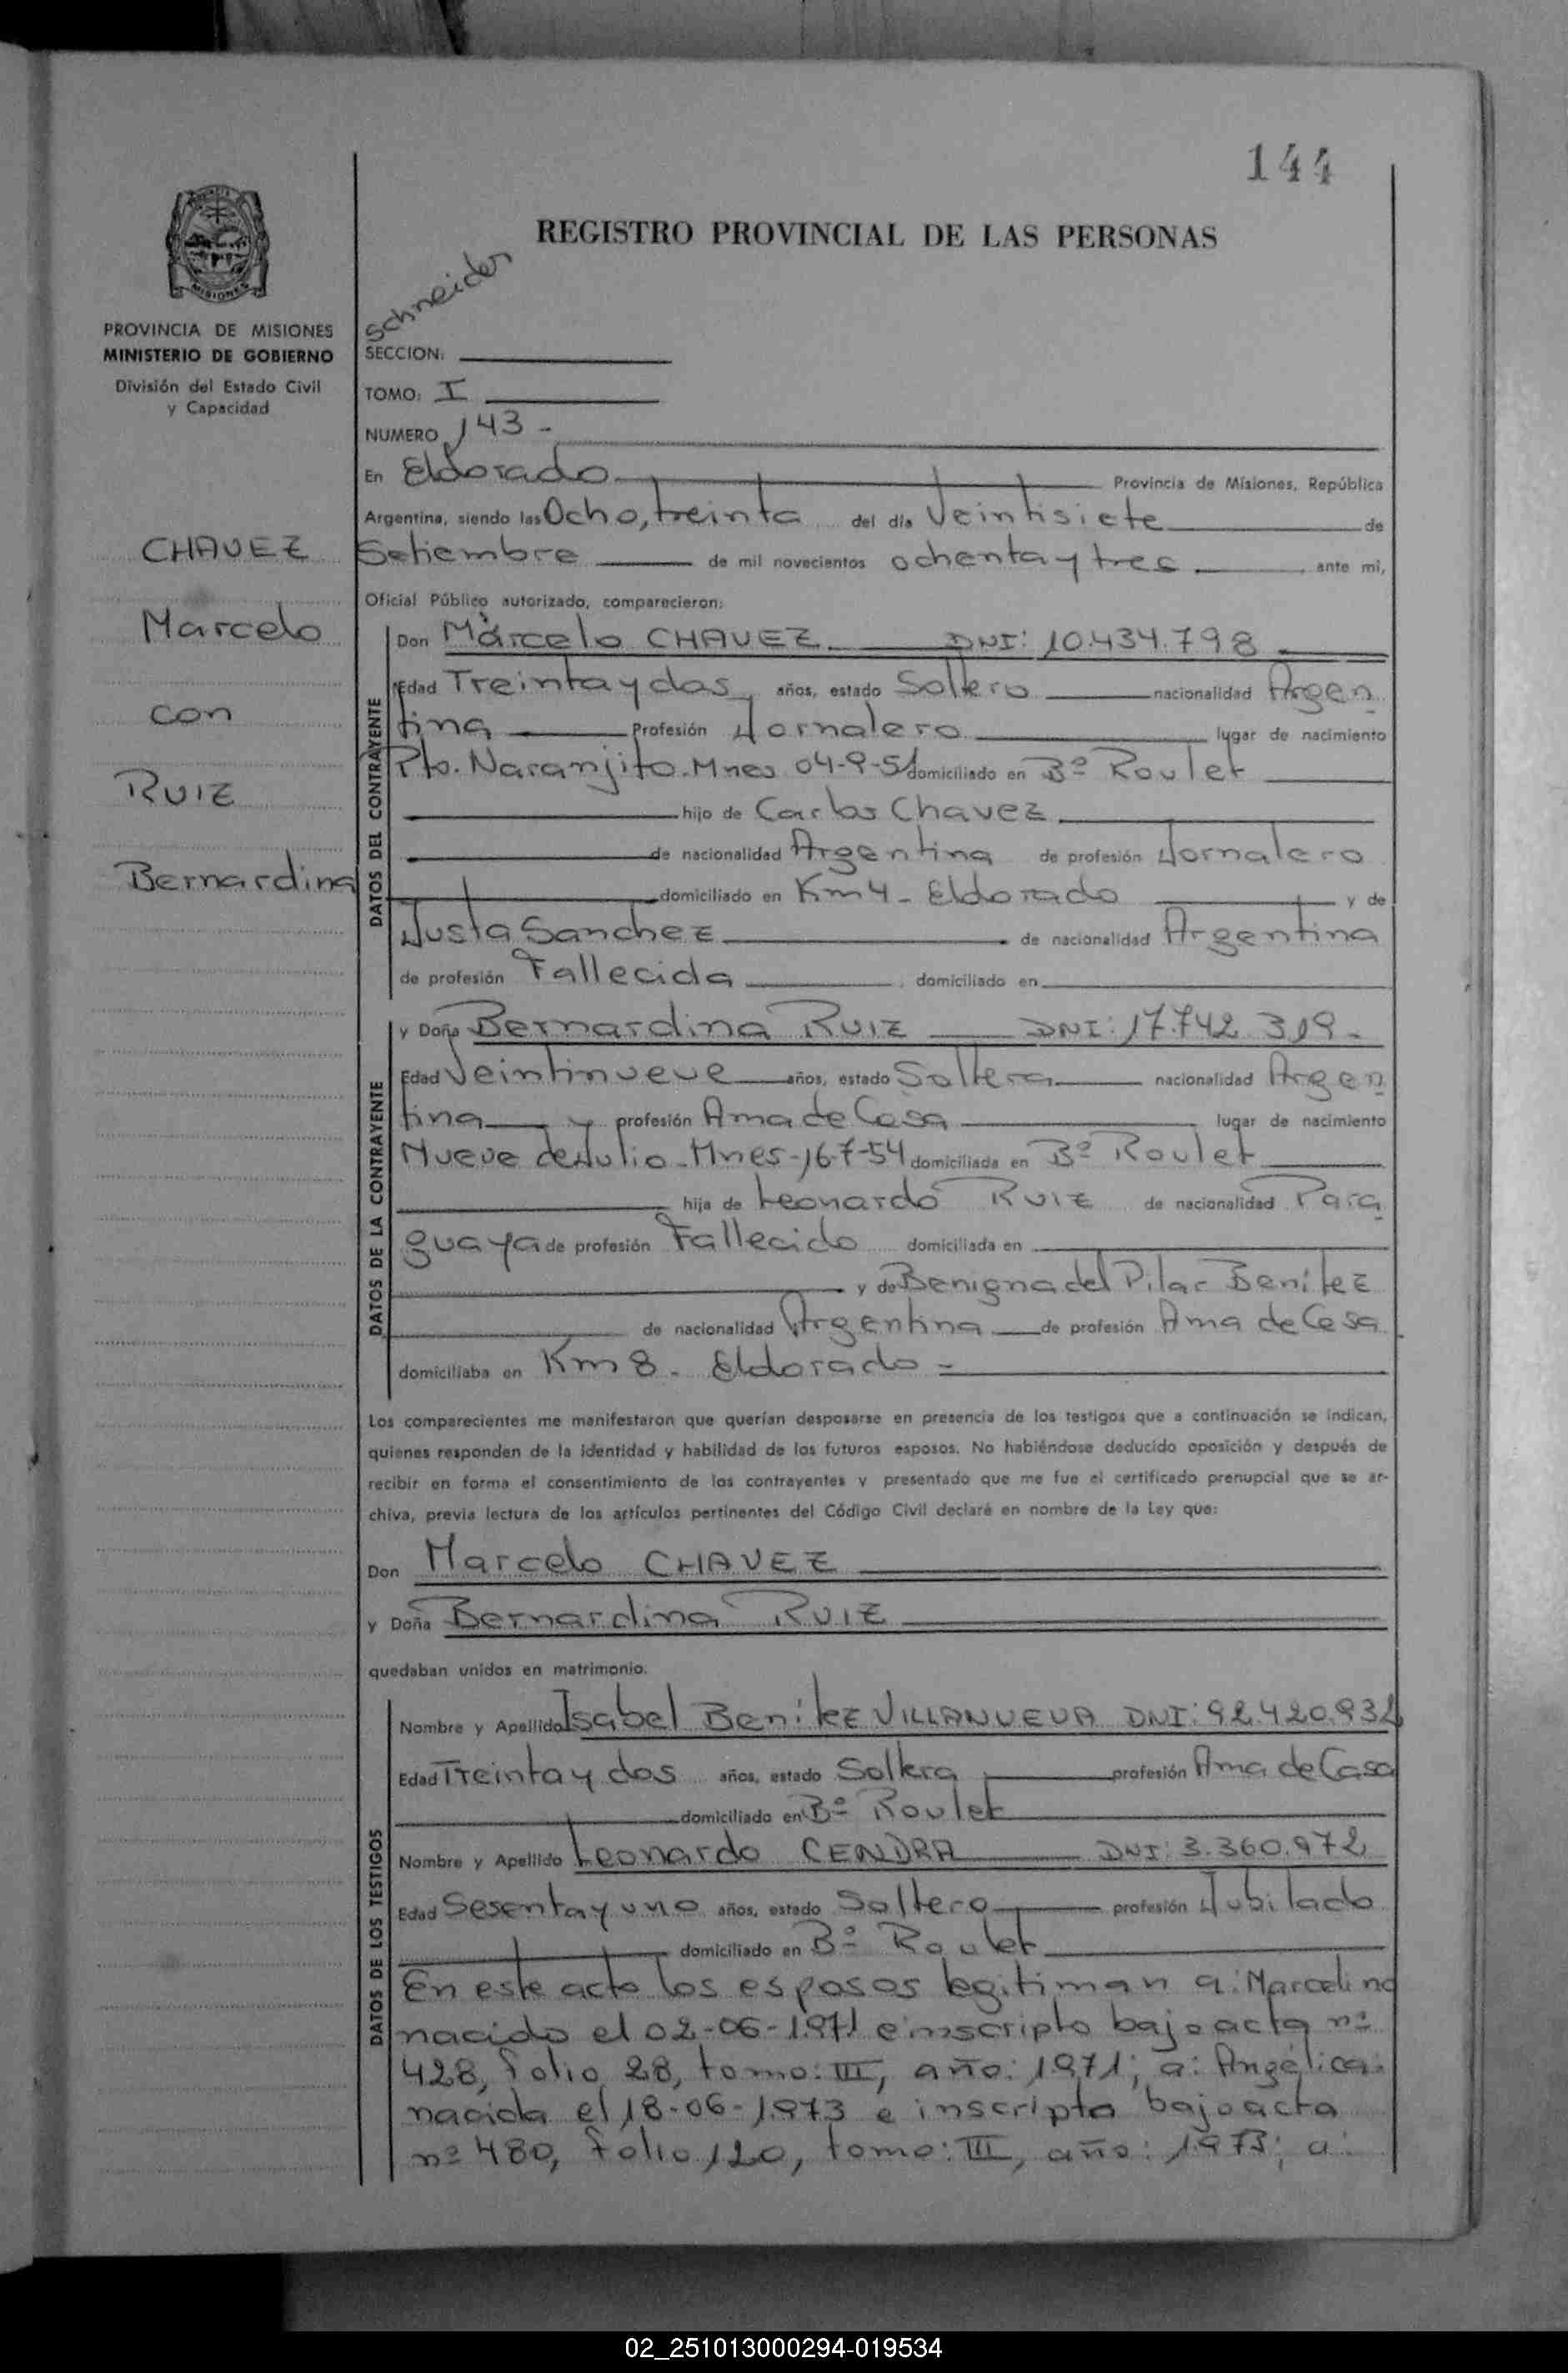 144
REGISTRO PROVINCIAL DE LAS PERSONAS
MISIONES
PROVINCIA DE MISIONES
MINISTERIO DE GOBIERNO
División del Estado Civil
y Capacidad
Schneider
SECCION:
TOMO: I
NUMERO 143 -
En Eldorado Provincia de Misiones, República
Argentina, siendo las Ocho, treinta del día Veintisiete de
Setiembre de mil novecientos ochenta y tres ante mi,
Oficial Público autorizado, comparecieron:
CHAVEZ
Marcelo
con
RUIZ
Bernardina
DATOS DEL CONTRAYENTE
Don Marcelo CHAVEZ DNI: 10.434.798
Edad Treinta y dos años, estado Soltero nacionalidad Argen
tina Profesión Jornalero lugar de nacimiento
Pto. Naranjito. Mnes 04-9-51 domiciliado en Bº Roulet
hijo de Carlos Chavez
de nacionalidad Argentina de profesión Jornalero
domiciliado en Km 4 - Eldorado y de
Justa Sanchez de nacionalidad Argentina
de profesión Fallecida domiciliado en
DATOS DE LA CONTRAYENTE
y Doña Bernardina RUIZ DNI: 17.742.319-
Edad Veintinueve años, estado Soltera nacionalidad Argen
tina profesión Ama de Casa lugar de nacimiento
Nueve de Julio - Mnes - 16-7-54 domiciliada en Bº Roulet
hija de Leonardo RUIZ de nacionalidad Para
guaya de profesión Fallecido domiciliada en
y de Benigna del Pilar Benitez
de nacionalidad Argentina de profesión Ama de Casa
domiciliaba en Km 8 - Eldorado -
Los comparecientes me manifestaron que querían desposarse en presencia de los testigos que a continuación se indican,
quienes responden de la identidad y habilidad de los futuros esposos. No habiéndose deducido oposición y después de
recibir en forma el consentimiento de los contrayentes y presentado que me fue el certificado prenupcial que se ar-
chiva, previa lectura de los artículos pertinentes del Código Civil declaré en nombre de la Ley que:
Don Marcelo CHAVEZ
y Doña Bernardina RUIZ
quedaban unidos en matrimonio.
DATOS DE LOS TESTIGOS
Nombre y Apellido Isabel Benitez VILLANUEVA DNI: 92.420.932
Edad Treinta y dos años, estado Soltera profesión Ama de Casa
domiciliado en Bº Roulet
Nombre y Apellido Leonardo CENDRA DNI: 3.360.972
Edad Sesenta y uno años, estado Soltero profesión Jubilado
domiciliado en Bº Roulet
En este acto los esposos legitiman a: Marcelino
nacido el 02-06-1971 e inscripto bajo acta nº
428, folio 28, tomo: III, año: 1971; a: Angélica:
nacida el 18-06-1973 e inscripta bajo acta
nº 480, folio 120, tomo: III, año: 1973; a:
02_251013000294-019534